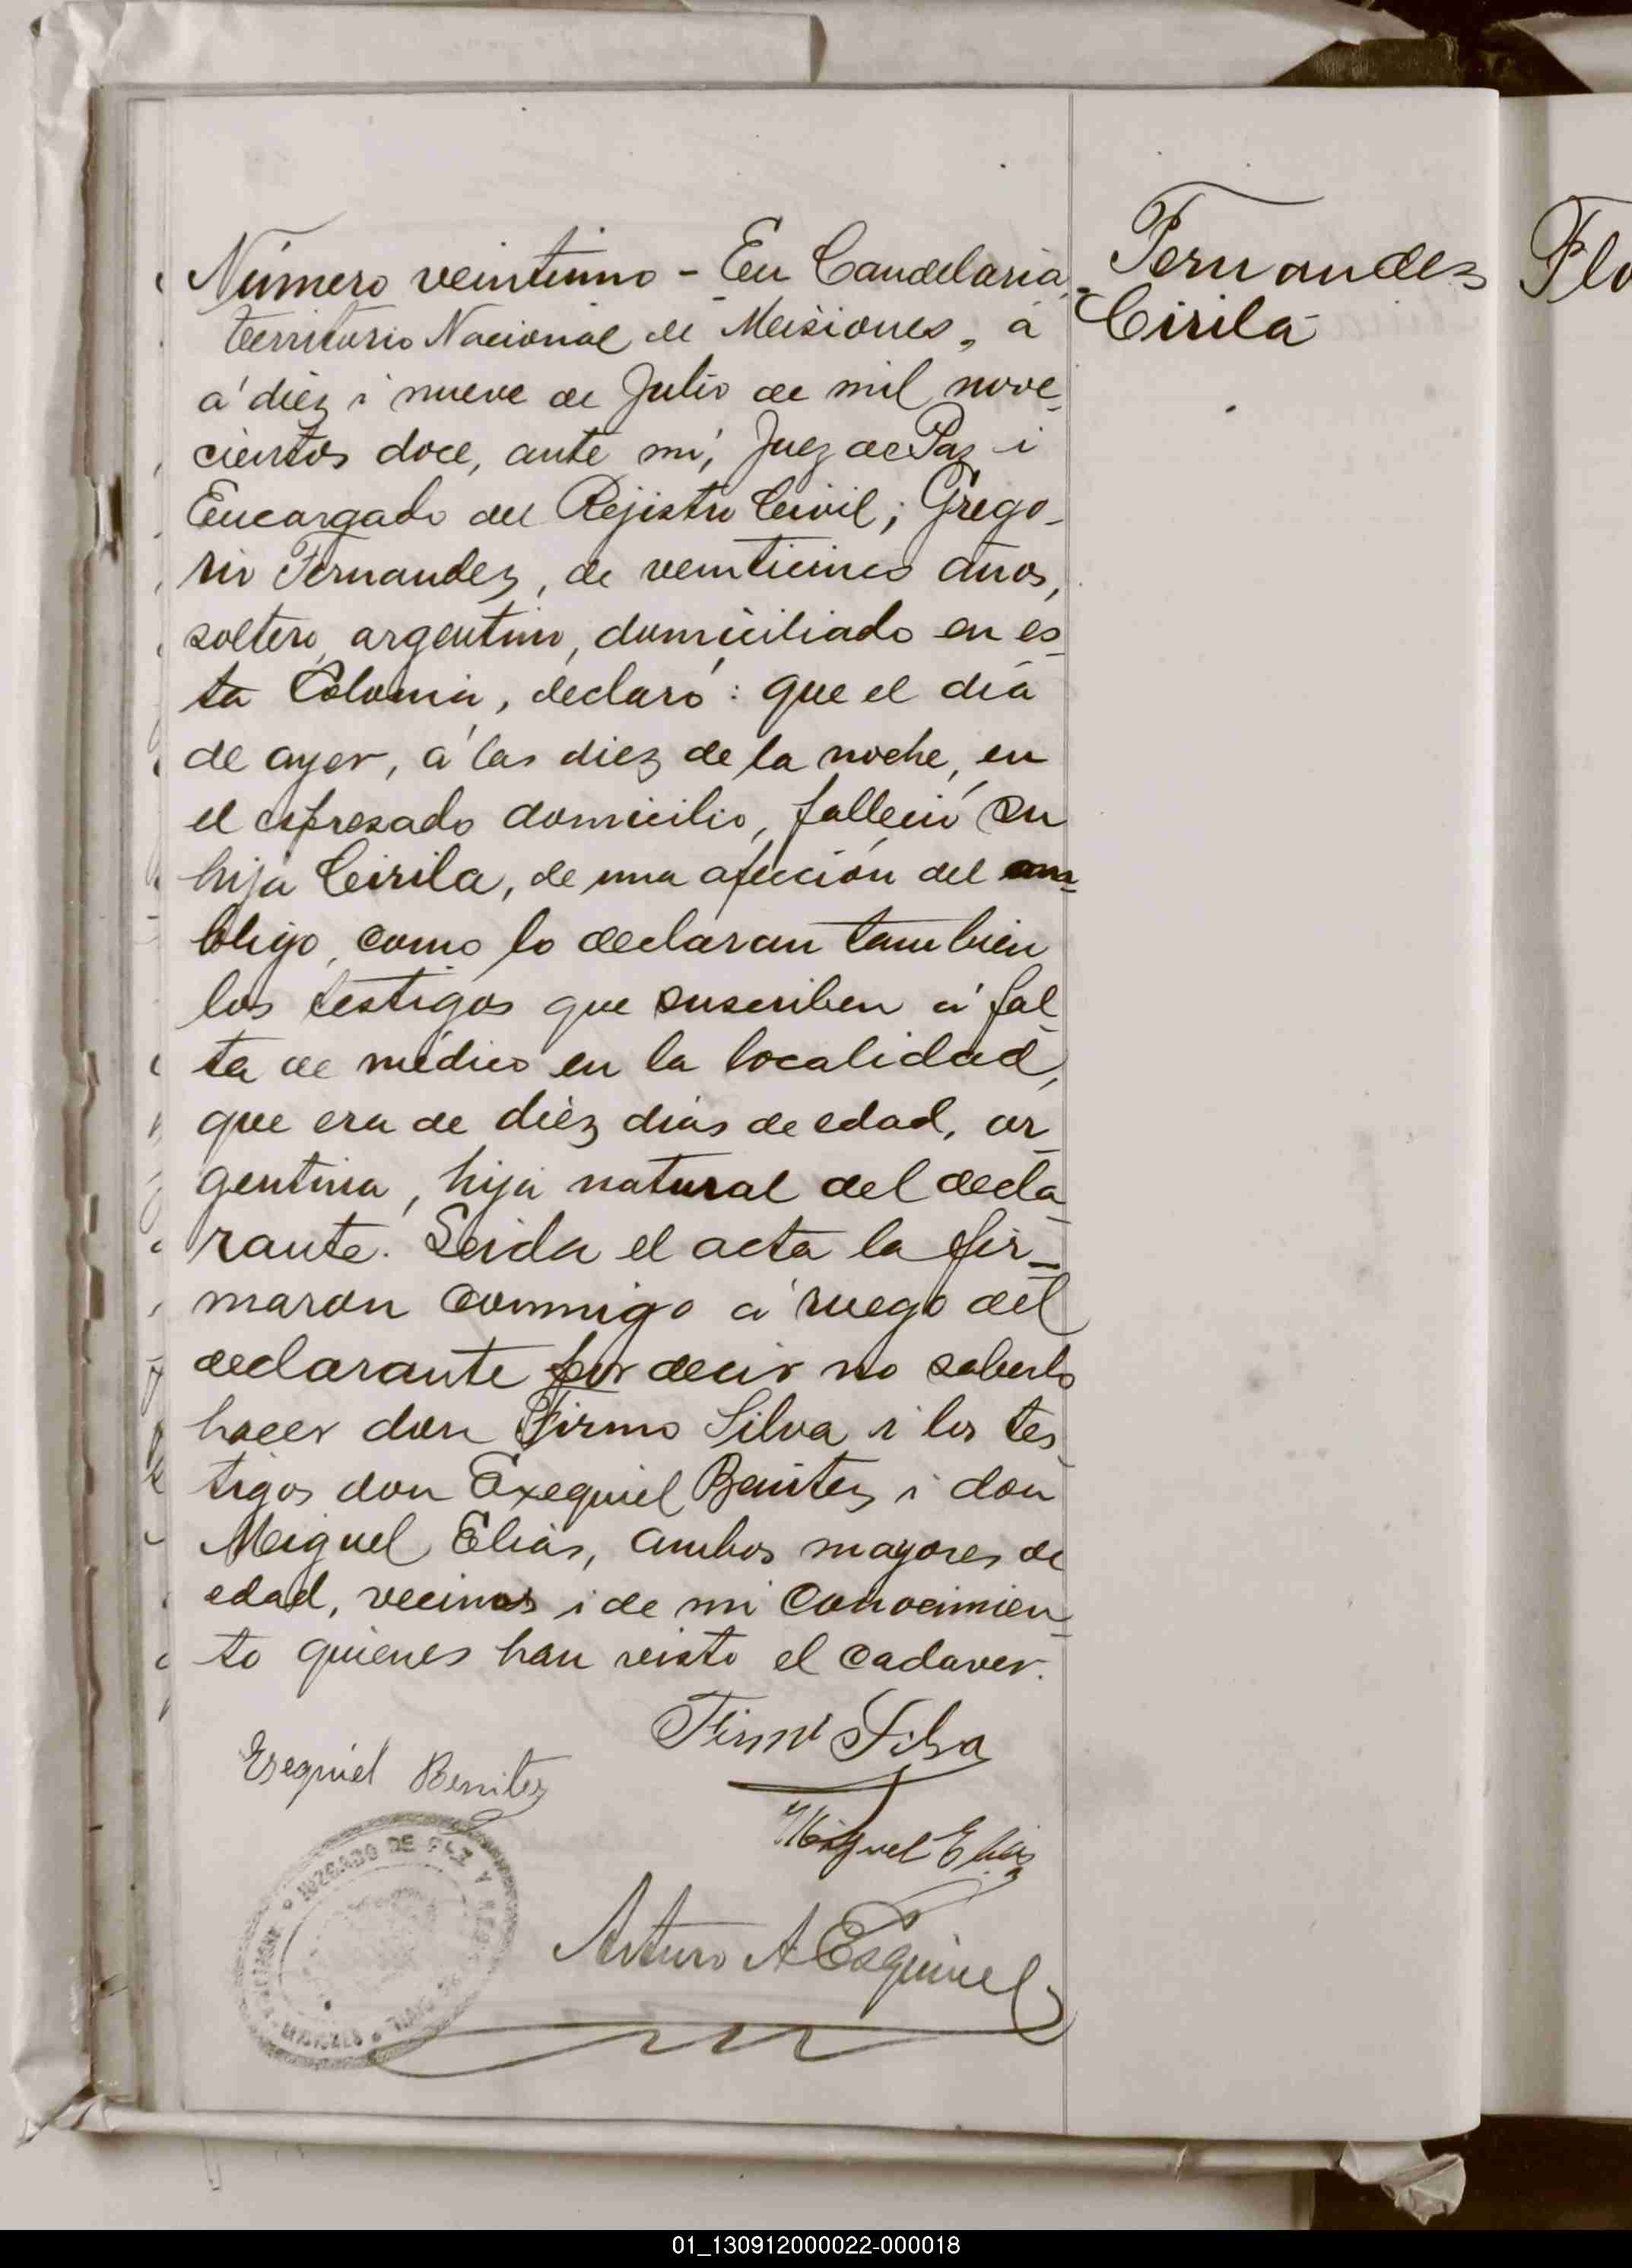 Número veintiuno - En Candelaria,
Territorio Nacional de Misiones, á
á diez i nueve de Julio de mil nove-
cientos doce, ante mí, Juez de Paz i
Encargado del Rejistro Civil; Grego-
rio Fernandez, de veinticinco años,
soltero, argentino, domiciliado en es-
ta Colonia, declaró: que el dia
de ayer, á las diez de la noche, en
el espresado domicilio, falleció su
hija Cirila, de una afección del om-
bligo, como lo declaran tambien
los testigos que suscriben á fal-
ta de médico en la localidad,
que era de diez dias de edad, ar-
gentina, hija natural del decla-
rante. Leida el acta la fir-
maron conmigo á ruego del
declarante por decir no saberlo
hacer don Firmo Silva i los tes-
tigos don Exequiel Benitez i don
Miguel Elias, ambos mayores de
edad, vecinos i de mi conocimien-
to quienes han visto el cadaver.
Fernandez
Cirila
Flo
Firmo Silva
Esequiel Benitez
Miguel Elias
JUZGADO DE PAZ Y
Arturo A Esquivel
01_130912000022-000018